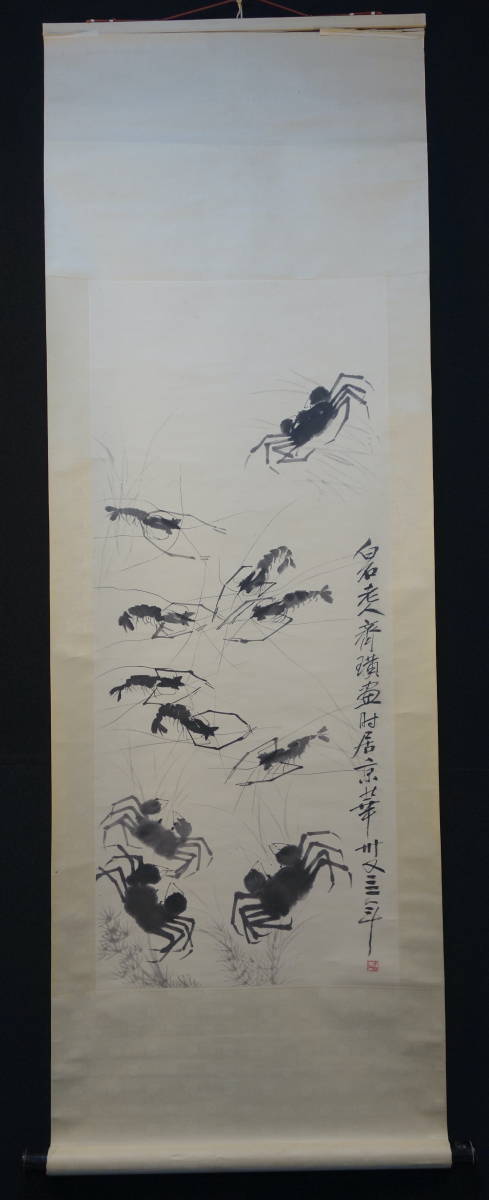 白石老人齊璜画时居京華卅又三年